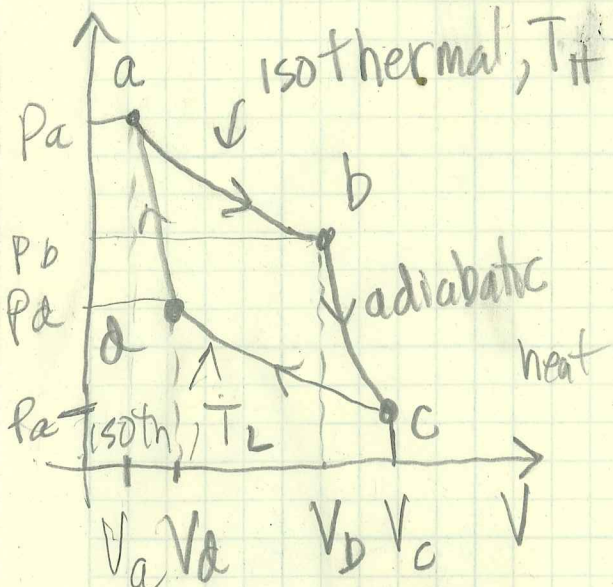 isothermal, T_H
a
Pa
b
Pb
adiabatic
Pd
d
heat
Pa
isoth, T_L
c
Va Vd Vb Vc V